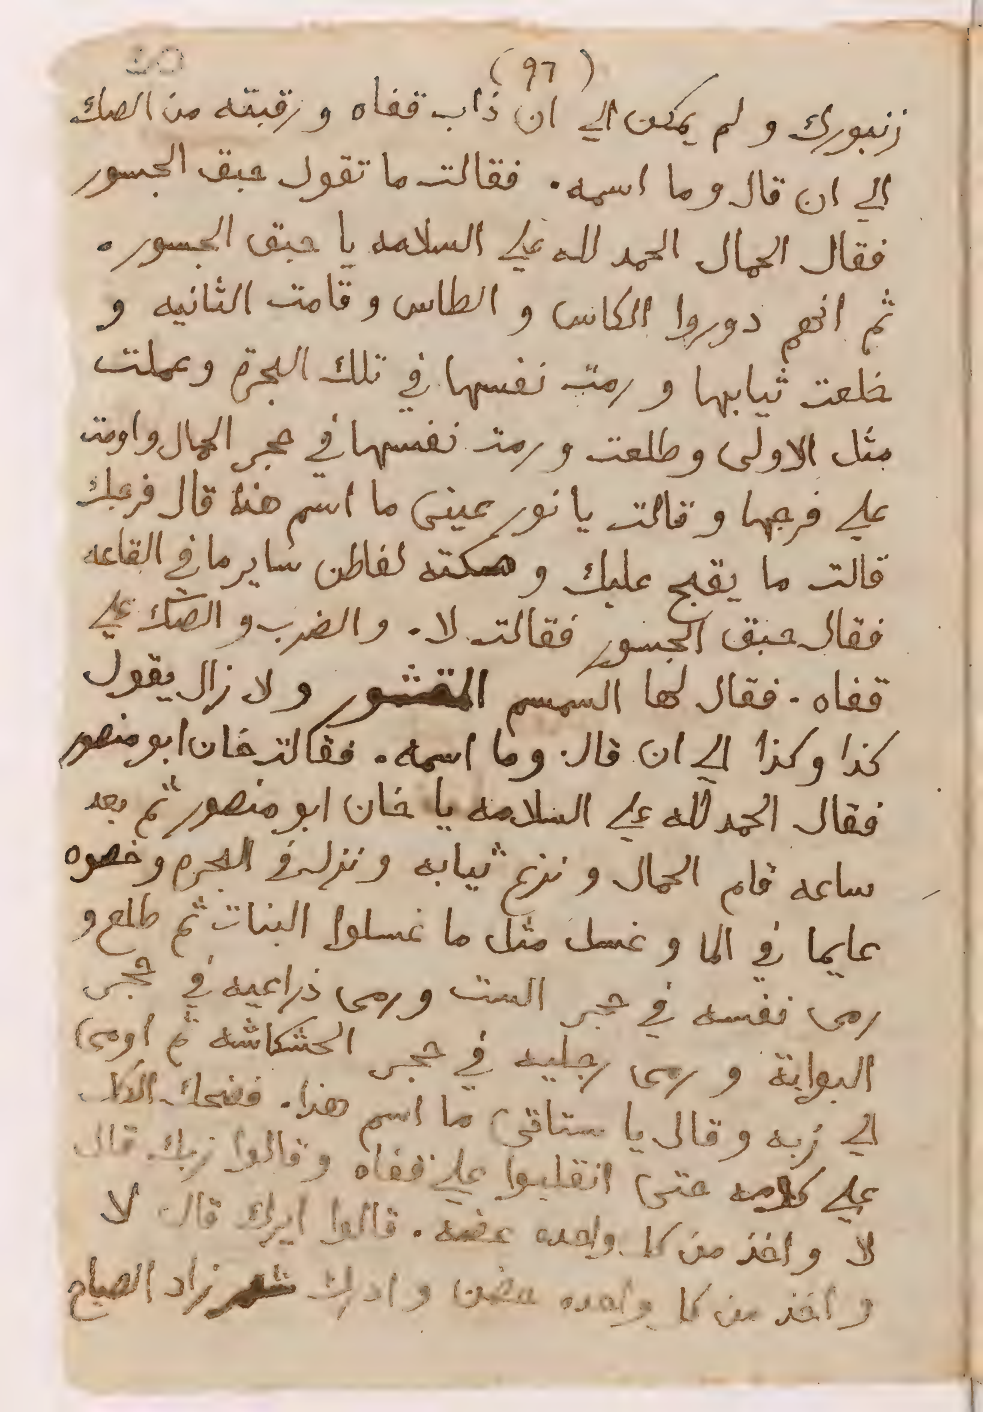 (٩٦)
زنبورك و لم يمكن الي ان ذاب قفاه و رقبته من الصك
الي ان قال وما اسمه. فقالت ما تقول حبق الجسور
فقال الحمال الحمد لله علي السلامه يا حبق الجسور.
ثم انهم دوروا الكاس و الطاس و قامت الثانيه و
خلعت ثيابها و رمت نفسها في تلك البحرة وعملت
مثل الاولى وطلعت و رمت نفسها في حجر الحمال واومت
علي فرجها و قالت يا نور عينى ما اسم هذا قال فرجك
قالت ما يقبح عليك و سايرما في القاعه
فقال حبق الجسور فقالت لا. و الضرب و الصك علي
قفاه. فقال لها السمسم المقشور و لا زال يقول
كذا وكذا الي ان قال وما اسمه. فقالت خان ابو منصور
فقال الحمد لله علي السلامه يا خان ابو منصور ثم بعد
ساعه قام الحمال و نزع ثيابه و نزل في البحره و
عايما في الما و غسل مثل ما غسلوا البنات ثم طلع و
رمى نفسه في حجر الست و رمى ذراعيه في حجر
البوابة و رمى رجليه في حجر الحشكاشه ثم اومى
الي زبه و قال يا ستاتى ما اسم هذا. فضحك الكل
علي كلامه حتى انقلبوا علي قفاه و قالوا زبك قال
لا و اخذ من كل واحده عضه. قالوا ايرك قال لا
و اخذ من كل واحده حضن و ادرك شهر زاد الصباح